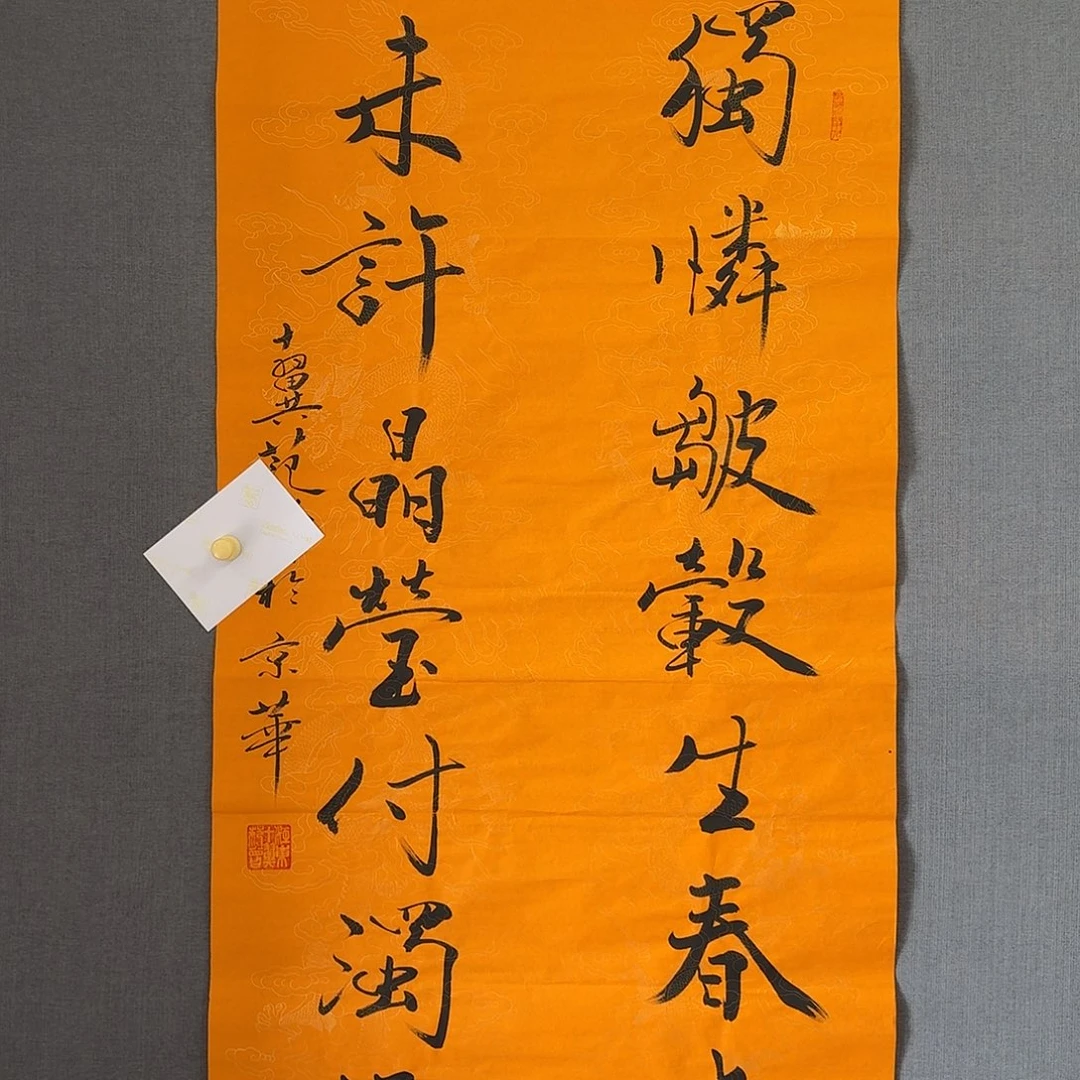 獨憐皺縠生春
未許晶瑩付濁
十翼范
於京華